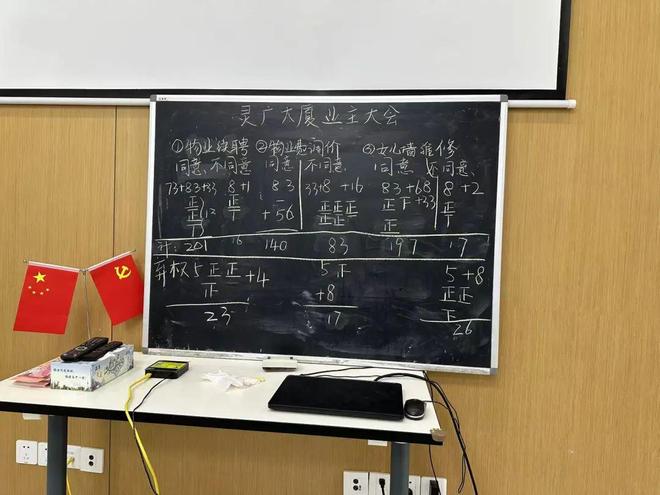 灵广大厦业主大会
①物业续聘 ②物业费调价 ③女儿墙维修
同意、不同意 同意 不同意、 同意 不同意、
73+83+33 8+1 83 33+8 +16 83+68 8+2
正 正 正正正 正下+33 正
正 (12 T +56 正正 正 T
计: 201 16 140 83 197 17
弃权 5 正正 +4 5 下 5+8
正 +8 正正
下
23 17 26